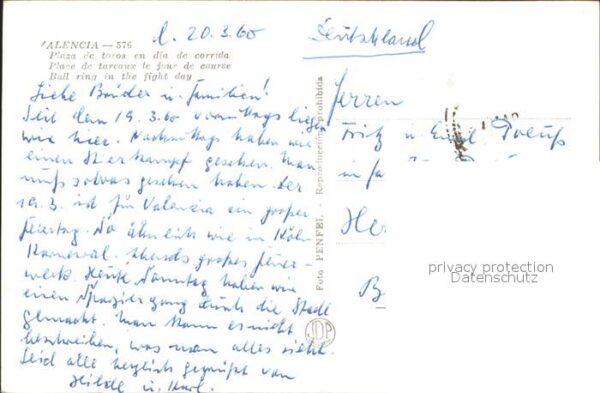 d. 20.3.60
Deutschland
VALENCIA — 576
Plaza de toros en día de corrida
Place de taureaux le jour de course
Bull ring in the fight day
Liebe Brüder u. Familien!
Seit dem 19.3.60 vormittags liegen
wir hier. Nachmittags haben wir
einen Stierkampf gesehen. Man
muß sowas gesehen haben. Der
19.3. ist für Valencia ein großer
Feiertag. So ähnlich wie in Köln
Karneval. Abends großes Feuer-
werk. Heute, Sonntag haben wir
einen Spaziergang durch die Stadt
gemacht. Man kann es nicht
beschreiben, was man alles sieht.
Seid alle herzlich gegrüßt von
Hilde u. Karl.
Foto PENFEL - Reproducción prohibida
JDP
Herren
Fritz u. Emil
in
He
B
privacy protection
Datenschutz